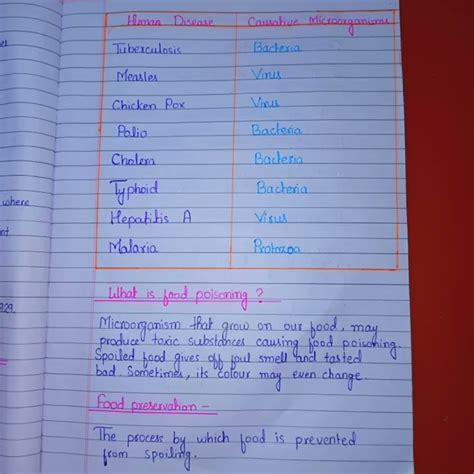 Human Disease Causative Microorganisms
Tuberculosis Bacteria
Measles Virus
Chicken Pox Virus
Polio Bacteria
Cholera Bacteria
Typhoid Bacteria
Hepatitis A Virus
Malaria Protozoa
where
What is food poisoning ?
Microorganism that grow on our food, may
produce toxic substances causing food poisoning.
Spoiled food gives off foul smell and tasted
bad. Sometimes, its colour may even change.
Food preservation -
The process by which food is prevented
from spoiling.